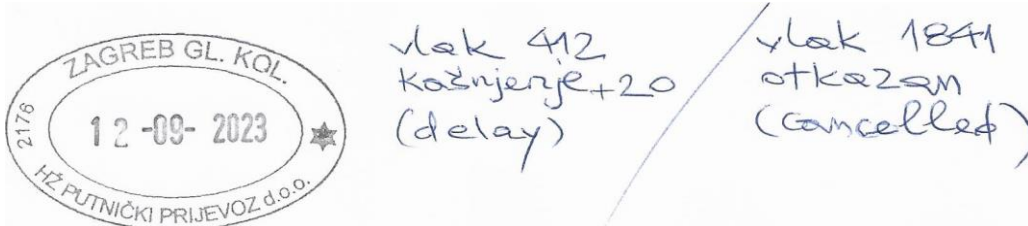 ZAGREB GL. KOL.
2176
12 -09- 2023
HŽ PUTNIČKI PRIJEVOZ d.o.o.
vlak 412
kašnjenje +20
(delay)
vlak 1841
otkazan
(cancelled)